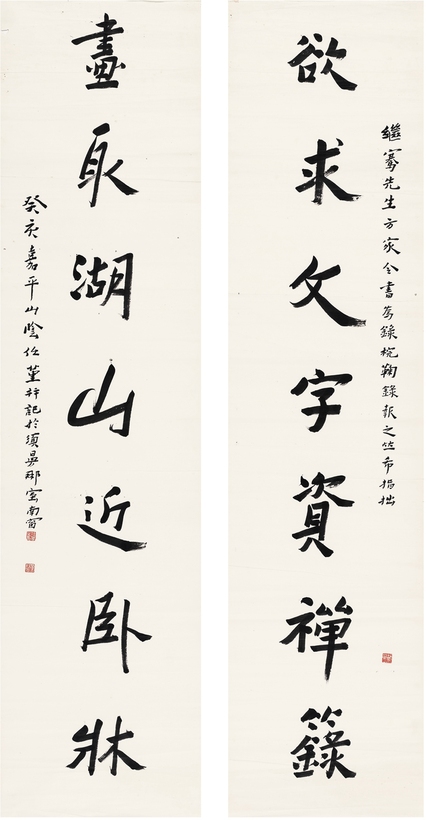 繼騫先生方家令書為錄梡鞠錄報之竝希揭拙
欲求文字資禪籙
盡取湖山近臥牀
癸亥嘉平山陰任堇并記於須曼那室南窗